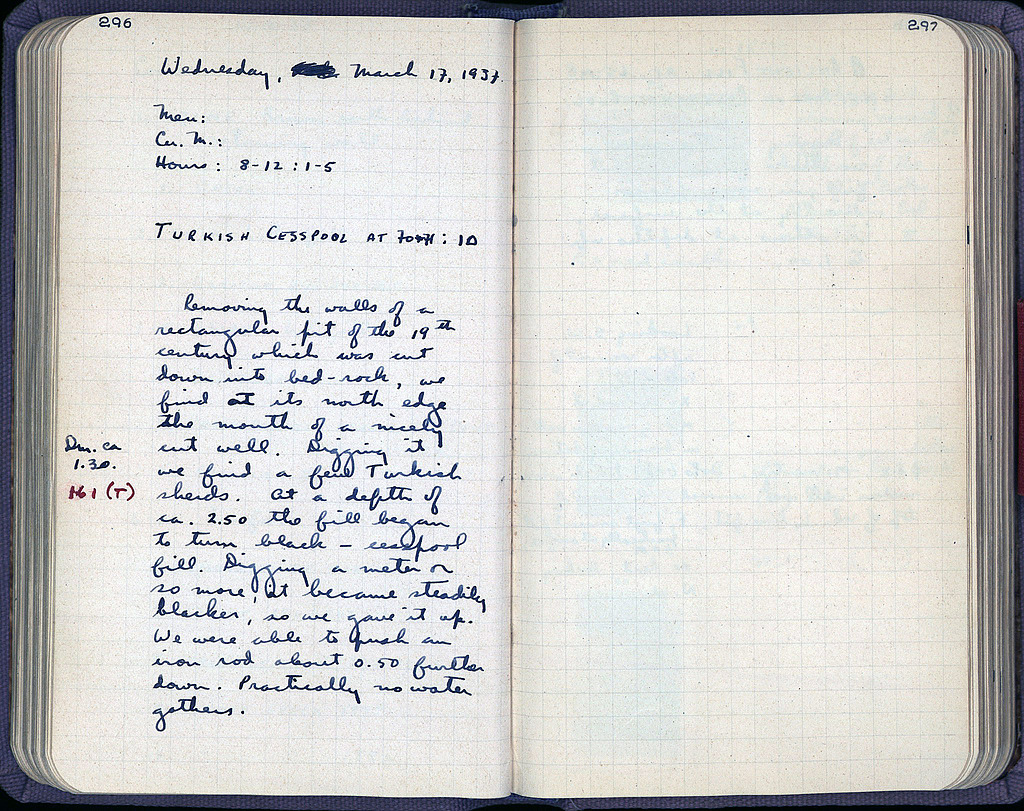 296
297
Wednesday, March 17, 1937.
Men:
Cu. M.:
Hours: 8-12 : 1-5
TURKISH CESSPOOL AT : ID
Removing the walls of a
rectangular pit of the 19th
century which was cut
down into bed-rock, we
find at its north edge
the mouth of a nicely
Dm. ca
cut well. Digging it
1.30.
we find a few Turkish
161 (T)
sherds. At a depth of
ca. 2.50 the fill began
to turn black - cesspool
fill. Digging a meter or
so more, it became steadily
blacker, so we gave it up.
We were able to push an
iron rod about 0.50 further
down. Practically no water
gathers.